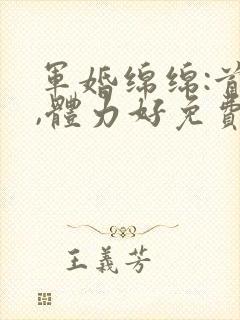 軍婚綿綿:首
,體力好免費
王義芳